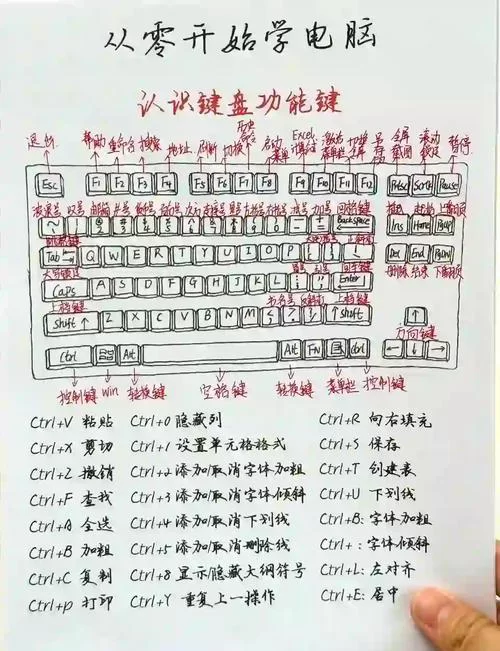 从零开始学电脑
认识键盘功能键
退出 帮助 重命名 搜索 地址 刷新 切换 启动菜单 Excel 激活菜单栏 切换 全屏截图 滚动锁定 暂停
Esc F1 F2 F3 F4 F5 F6 F7 F8 F9 F10 F11 F12 PrtSc Pause
减号 加号 回格键
Backspace Ins Home PgUp
Tab Q W E R T Y U I O P
Del End PgDn
大写锁定 回车键
删除 结束 下翻页
Caps A S D F G H J K L Enter
上档键 上档键
Shift ↑ Z X C V B N M Shift ↑
方向键
Ctrl Alt Alt FN Ctrl ← ↓ →
控制键 win 转换键 空格键 转换键 菜单栏 控制键
Ctrl+V 粘贴 Ctrl+0 隐藏列 Ctrl+R 向右填充
Ctrl+X 剪切 Ctrl+1 设置单元格格式 Ctrl+S 保存
Ctrl+Z 撤销 Ctrl+2 添加/取消字体加粗 Ctrl+T 创建表
Ctrl+F 查找 Ctrl+3 添加/取消字体倾斜 Ctrl+U 下划线
Ctrl+A 全选 Ctrl+4 添加/取消下划线 Ctrl+B: 字体加粗
Ctrl+B 加粗 Ctrl+5 添加/取消删除线 Ctrl+ : 字体倾斜
Ctrl+C 复制 Ctrl+8 显示隐藏大纲符号 Ctrl+L: 左对齐
Ctrl+p 打印 Ctrl+Y 重复上一操作 Ctrl+E: 居中